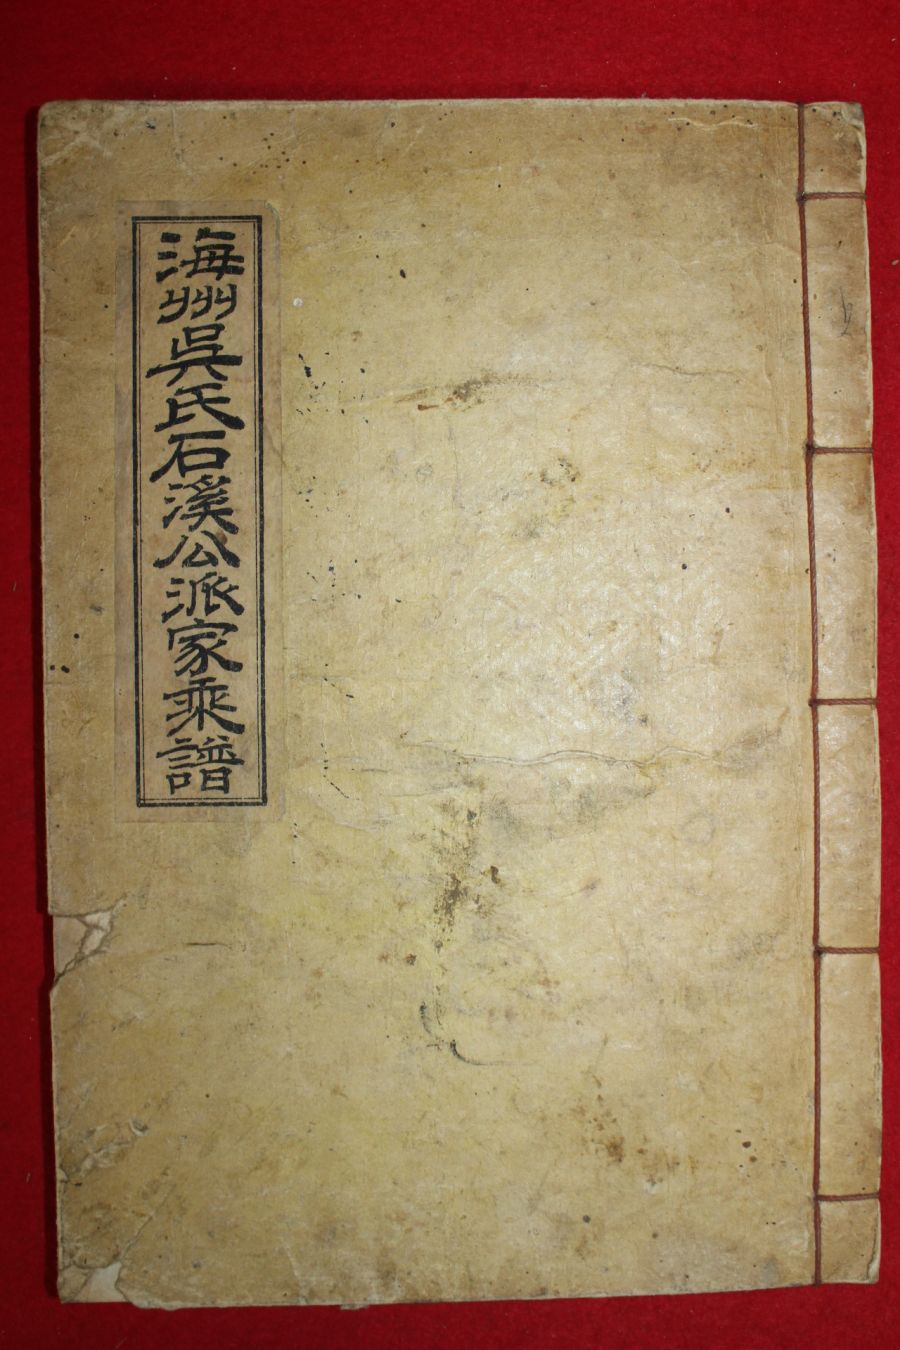 海州吳氏石溪公派家乘譜